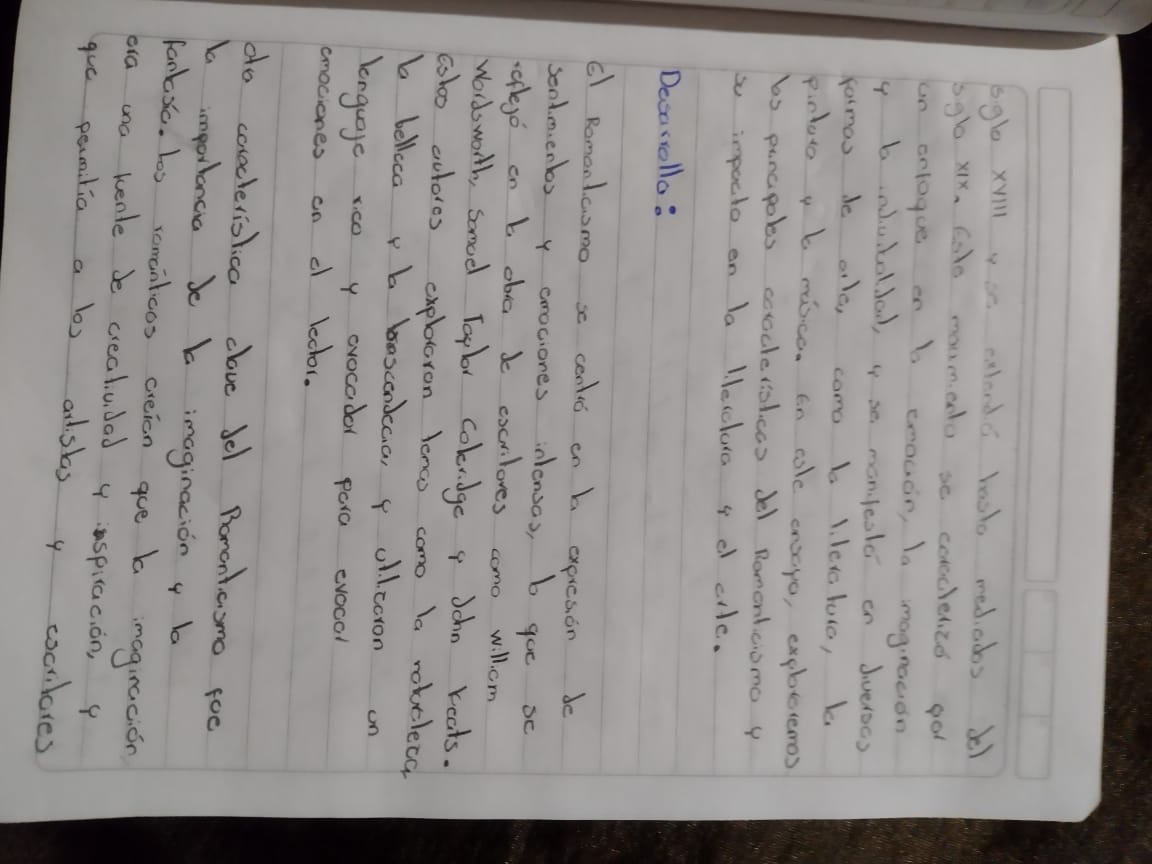 siglo XVIII y se extendió hasta mediados del
siglo XIX. Este movimiento se caracterizó por
un enfoque en la emoción, la imaginación
y la individualidad, y se manifestó en diversas
formas de arte, como la literatura, la
pintura y la música. En este ensayo, exploraremos
las principales características del Romanticismo y
su impacto en la literatura y el arte.
Desarrollo:
El Romanticismo se centró en la expresión de
sentimientos y emociones intensas, lo que se
reflejó en la obra de escritores como William
Wordsworth, Samuel Taylor Coleridge y John Keats.
Estos autores exploraron temas como la naturaleza,
la belleza y la trascendecia, y utilizaron un
lenguaje rico y evocador para evocar
emociones en el lector.
Otra característica clave del Romanticismo fue
la importancia de la imaginación y la
fantasía. Los románticos creían que la imaginación
era una fuente de creatividad y inspiración, y
que permitía a los artistas y escritores